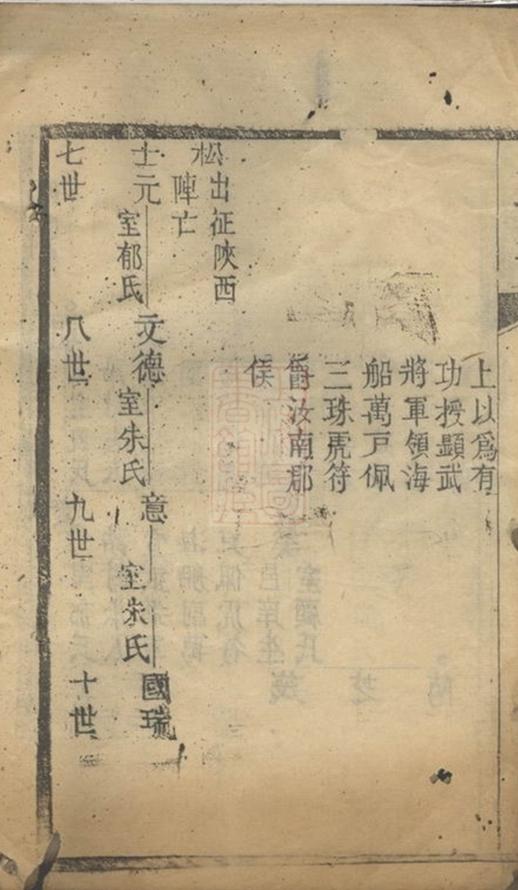 上以爲有
功授顯武
將軍領海
船萬戸佩
三珠虎符
爵汝南郡
侯
松出征陜西
陣亡
士元
室郁氏
文德
室朱氏
意
室朱氏
國瑞
七世
八世
九世
十世